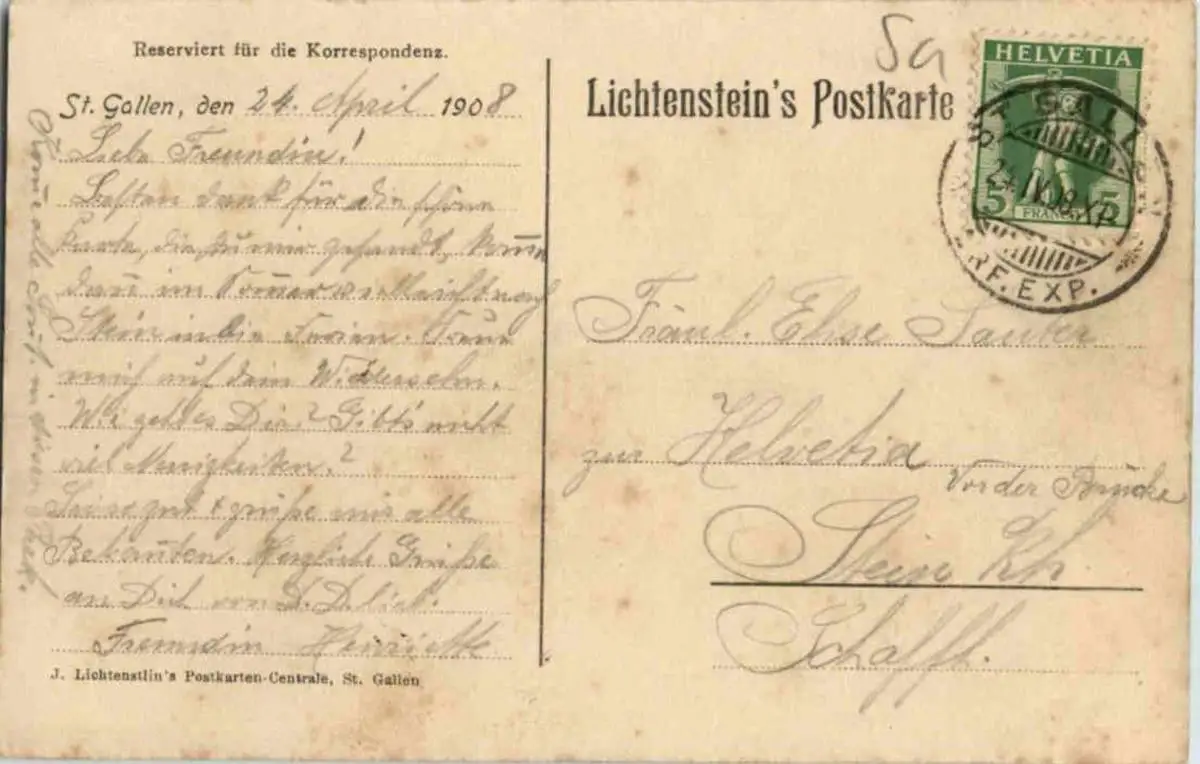 Reserviert für die Korrespondenz.
St. Gallen, den 24. April 1908
Liebe Freundin!
Besten dank für die schöne
Karte, die du mir gesandt, kome
dan im Somer vielleicht nach
Stein in die Ferien. Freue
mich auf dein Wiedersehn.
Wi geht es Dir? Gibt's nicht
viel Neuigkeiten?
Sei so gut & grüße mir alle
Bekanten. Herzliche Grüße
an Dich von D. D. lieb.
Freundin Henriette
J. Lichtenstlin's Postkarten-Centrale, St. Gallen
Kome alle
5a
Lichtenstein's Postkarte
HELVETIA
5 5
FRANCO
ST. GALLEN
24.IV.08
BRF. EXP.
Fräul. Elise Sauter
zur Helvetia
Vor der Brücke
Stein Rh
Schaffh.